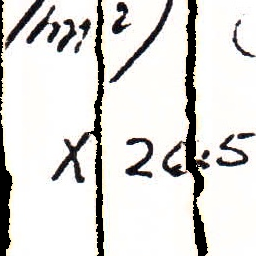 /hm²) (
X 26.5